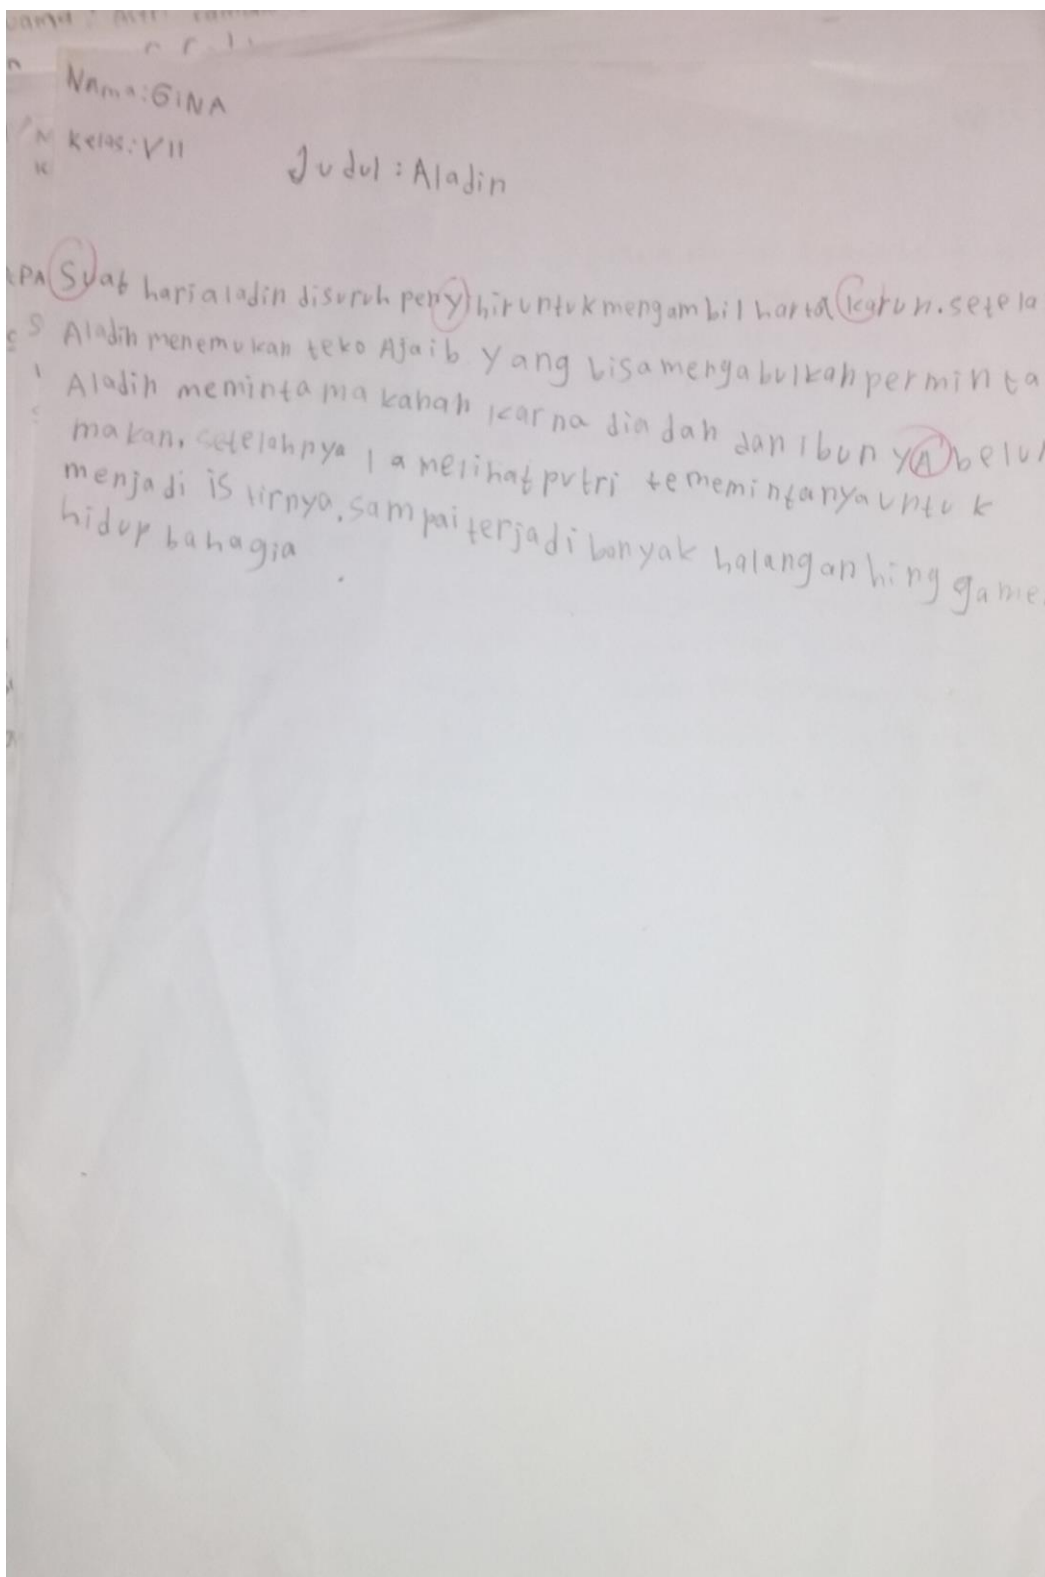 Nama: GINA
Kelas: VII
Judul: Aladin
Suat hari aladin disuruh penyihir untuk mengambil harta karun. setela
Aladin menemukan teko Ajaib yang bisa mengabulkan perminta
Aladin meminta makanan karna dia dan dan ibunyA belu
makan. setelahnya Ia melihat putri te memintanya untuk
menjadi istirnya. sampai terjadi banyak halangan hingga me
hidup bahagia